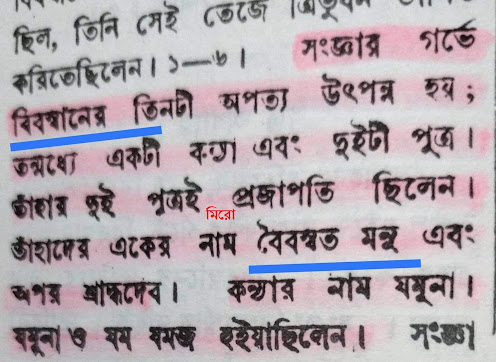 ছিল, তিনি সেই তেজে ত্রিভুবন
করিতেছিলেন। ১—৬। সংজ্ঞার গর্ভে
বিবস্বানের তিনটী অপত্য উৎপন্ন হয়;
তন্মধ্যে একটী কন্যা এবং দুইটী পুত্র।
তাঁহার দুই পুত্রই প্রজাপতি ছিলেন।
মিরো
তাঁহাদের একের নাম বৈবস্বত মনু এবং
অপর শ্রাদ্ধদেব। কন্যার নাম যমুনা।
যমুনা ও যম যমজ হইয়াছিলেন। সংজ্ঞা